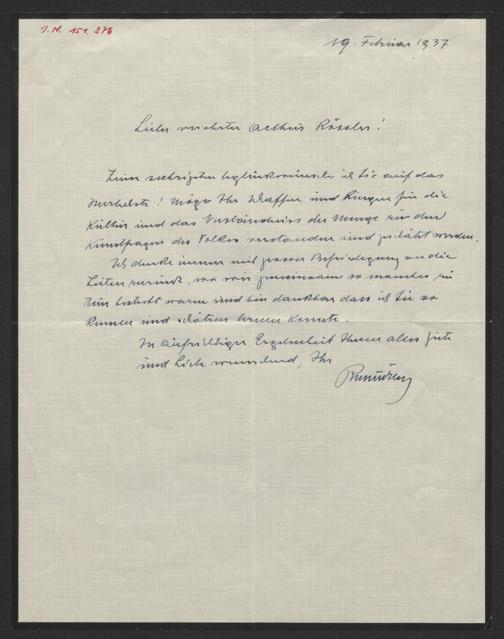 I.N. 151.276
19. Februar 1937
Lieber verehrter Arthur Rössler!
Zum sechzigsten beglückwünsche ich Sie auf das
Herzlichste! Möge Ihr Schaffen und Ringen für die
Kultur und das Verständniss der Menge für den
Kunstfragen des Volkes verstanden und geschätzt werden.
Ich denke immer mit grosser Befriedigung an die
Zeiten zurück, wo wir gemeinsam so manches zu
tun bestrebt waren und bin dankbar dass ich Sie so
kennen und schätzen lernen konnte.
In aufrichtiger Ergebenheit Ihnen alles Gute
und Liebe wünschend, Ihr